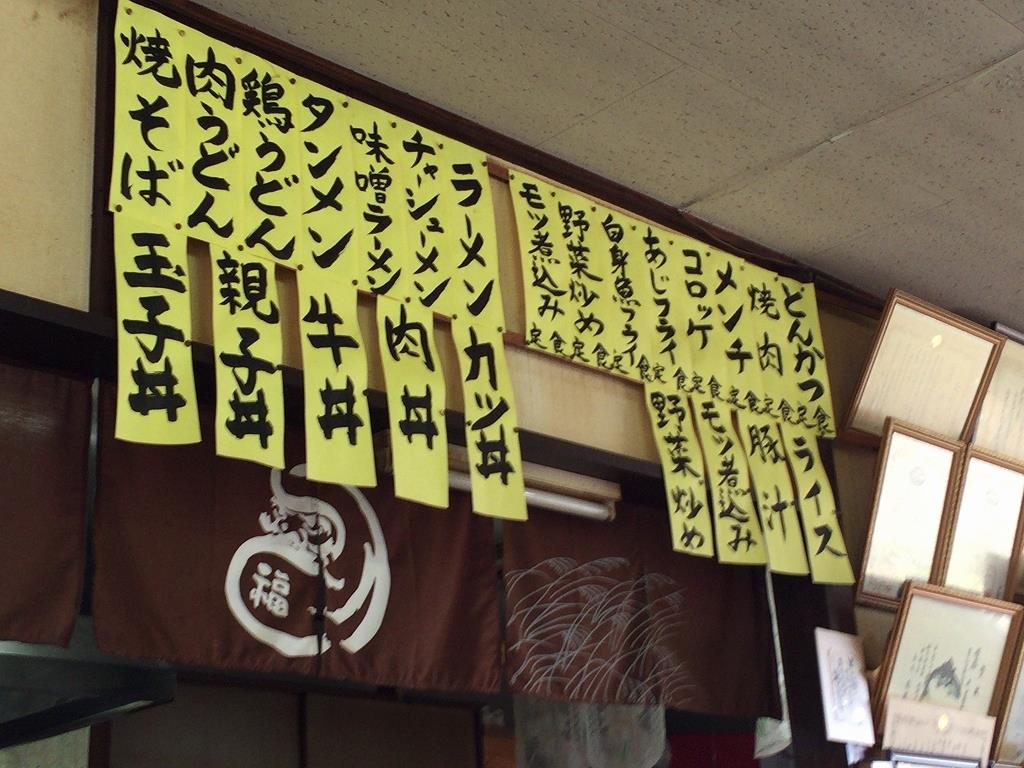 とんかつ定食
焼肉定食
メンチ定食
コロッケ定食
あじフライ定食
白身魚フライ定食
野菜炒め定食
モツ煮込み定食
ライス
豚汁
モツ煮込み
野菜炒め
ラーメン
チャーシューメン
味噌ラーメン
タンメン
鶏うどん
肉うどん
焼そば
カツ丼
肉丼
牛丼
親子丼
玉子丼
福